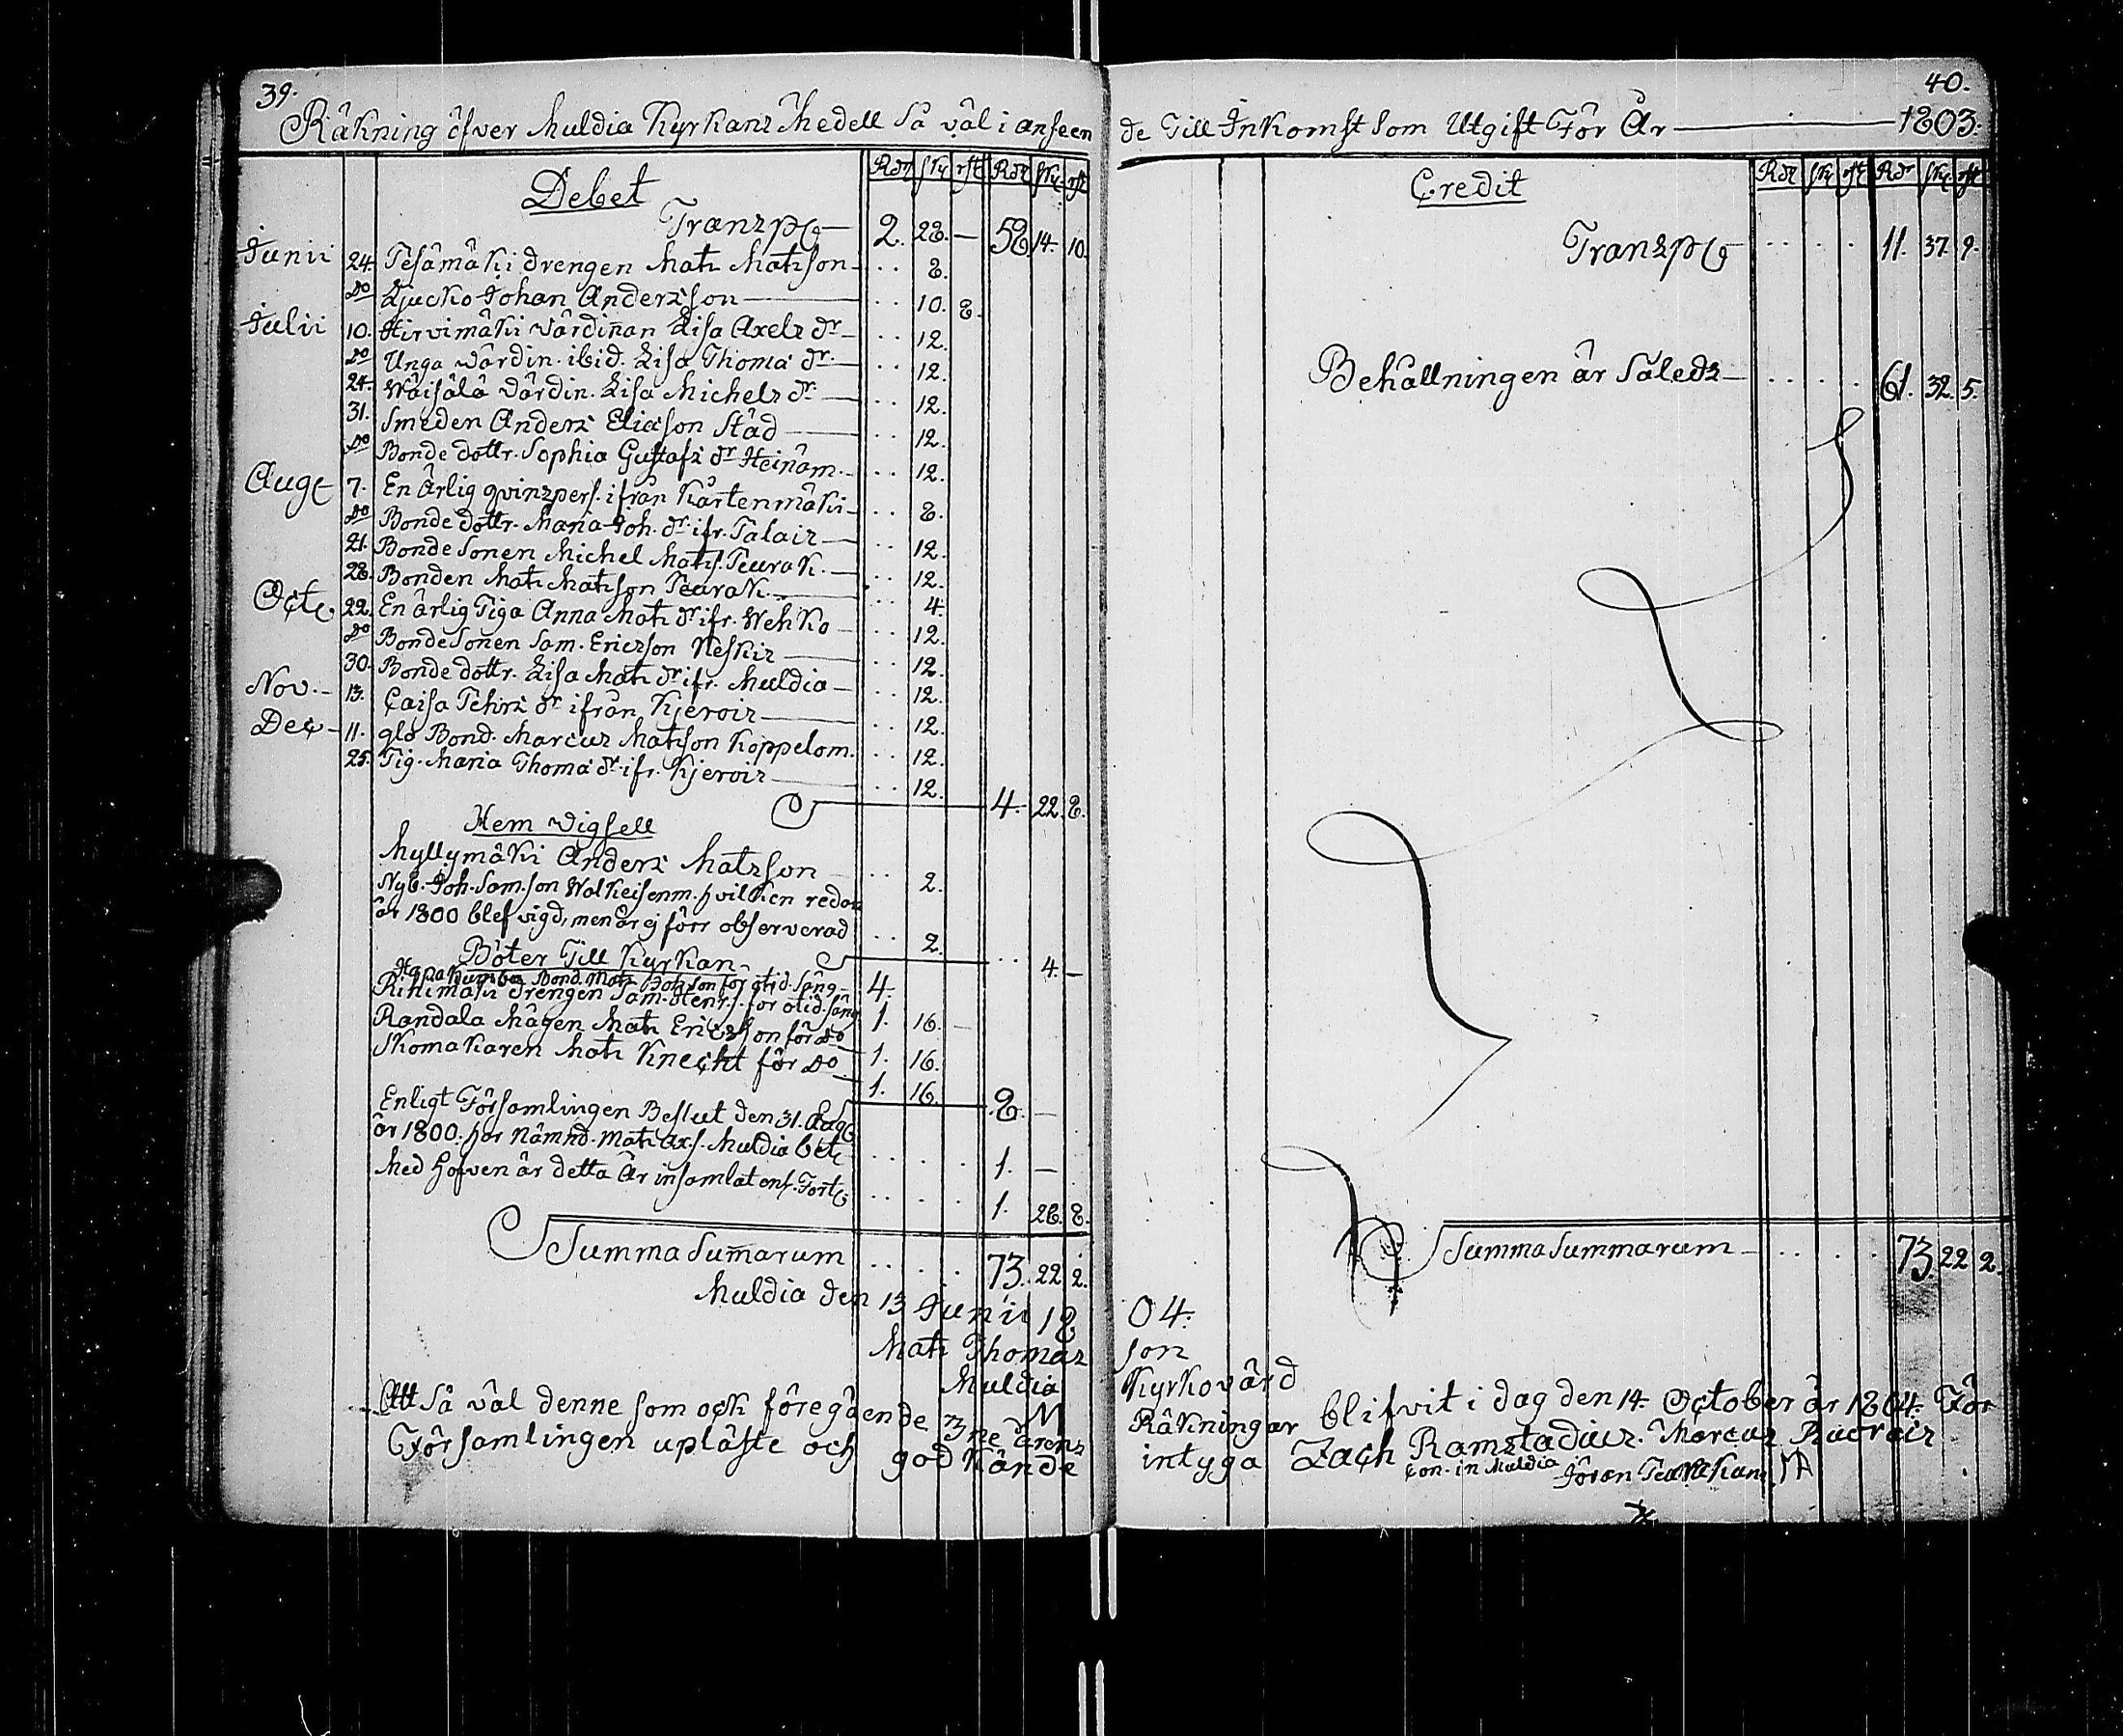 39.
Räkning öfver Muldia Kyrkans Medell Så väl i anseen
Rdr sk rst Rdr sk rst
Debet
Transp 2. 28. — 58 14. 10.
Junii 24. Tesämäki drengen Mats Matsson .. 8.
Do Ljucko Johan Andersson .. 10. 8.
Julii 10. Hirvimäki värdinnan Lisa Axels dr .. 12.
Do Unga värdin. ibid. Lisa Thoma dr .. 12.
24. Wäisälä värdin. Lisa Michels dr .. 12.
31. Smeden Anders Eliason Städ .. 12.
Do Bonde dottr. Sophia Gustafs dr Heinäm. .. 12.
Aug 7. En ärlig qvinspers. ifrån Kärtenmäki .. 8.
Do Bonde dottr. Maria Joh. dr ifr. Talais .. 12.
21. Bonde Sonen Michel Mats. Peurak. .. 12.
28. Bonden Mats Matsson Peurak. .. 4.
Oct 22. En ärlig Piga Anna Mats dr ifr. Wehko .. 12.
Do Bonde Sonen Sam. Ericsson Keskis .. 12.
30. Bonde dottr. Lisa Mats dr ifr. Muldia .. 12.
Nov. 13. Caisa Pehrs dr ifrån Kjerois .. 12.
Dec 11. gla Bond. Marcus Matsson Koppelom. .. 12.
25. Pig. Maria Thoma dr ifr. Kjerois .. 12.
4. 22. 8.
Hem vigsell
Myllymäki Anders Matsson .. 2.
Nyb. Joh. Sam.son Walkeisenm. hvilken redan
år 1800 blef vigd, men är ej förr observerad .. 2.
.. 4. —
Böter Till Kyrkan
Bond. Mats för otid. Säng 4.
Rihimäki drengen Sam. Henr.s. för otid. säng 1. 16. —
Randala Mågen Mats Ericsson för do 1. 16.
Skomakaren Mats Knecht för do 1. 16.
8. —
Enligt Församlingen Beslut den 31. Aug
år 1800. har Nämnd. Mats Ax.s. Muldia bet .... 1. —
Med Hofven är detta År insamlat enl. Fort .... 1. 28. 8.
Summa Summarum .... 73. 22 2.
Muldia den 13 Junii 18
Mats Thomas
Muldia
Att Så väl denne som ock föregående 3ne årens
Församlingen upläste och godkände
40.
de Till Inkomst som Utgift För År 1803.
Rdr sk rst Rdr sk rst
Credit
Transp .... 11. 37. 9.
Behållningen är Således .... 61. 32. 5.
Summa Summarum .... 73. 22 2.
04.
son
Kyrkovärd
Räkningar blifvit i dag den 14. October år 1804. För
intyga Zach Ramstadius. Marcus
con. in Muldia Jöran